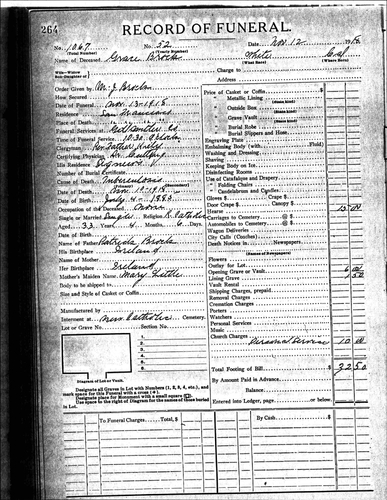 264
RECORD OF FUNERAL.
No. 1067 No. 32 Date Nov 12 191
(Total Number) (Yearly Number)
Name of Deceased Grace Brock White Cal
(What Race) (Where Born)
Charge to
Address
Order Given by M. J. Brock
How Secured
Date of Funeral Nov. 13 - 1918
Residence San Francisco
Place of Death
Funeral Services at
Time of Funeral Service 10:30 o'clock
Clergyman Rev Father
Certifying Physician Dr.
His Residence
Number of Burial Certificate
Cause of Death Tuberculosis
(Primary) (Secondary)
Date of Death Nov. 11 - 1918
Date of Birth July 4 - 1883
Occupation of the Deceased
Single or Married Single Religion R. Catholic
Aged 33 Years 4 Months 6 Days
Date of Birth
Name of Father Patrick Brock
His Birthplace Ireland
Name of Mother
Her Birthplace Ireland
Mother's Maiden Name Mary
Body to be shipped to
Size and Style of Casket or Coffin
Manufactured by
Interment at New Catholic Cemetery.
Lot or Grave No. Section No.
1.
2.
3.
4.
5.
Diagram of Lot or Vault.
Designate all Graves in Lot with Numbers (1, 2, 3, 4, etc.), and
mark space for this Funeral with a cross (+).
Designate place for Monument with a small square (□).
Use space to the right of Diagram for the names of those buried
in Lot.
Price of Casket or Coffin
" Metallic Lining
(State kind)
" Outside Box
(State kind)
" Grave Vault
(State kind)
" Burial Robe
" Burial Slippers and Hose
Engraving Plate
Embalming Body (with Fluid)
Washing and Dressing
Shaving
Keeping Body on Ice
Disinfecting Rooms
Use of Catafalque and Drapery
" Folding Chairs
" Candelabrum and Candles
Gloves $ Crape $
Door Crape $ Canopy $
Hearse 15 00
Carriages to Cemetery @ $
Automobiles to Cemetery @ $
Wagon Deliveries
City Calls (Coaches)
Death Notices in Newspapers
(Names of Newspapers)
Flowers
Outlay for Lot
Opening Grave or Vault 6 00
Lining Grave 1 50
Vault Rental
Shipping Charges, prepaid
Removal Charges
Cremation Charges
Porters
Watchers
Personal Services
Music
Church Charges
Personal Service 10 00
Total Footing of Bill $ 32 50
By Amount Paid in Advance
Balance
Entered into Ledger, page or below.
To Funeral Charges Total, $ By Cash $